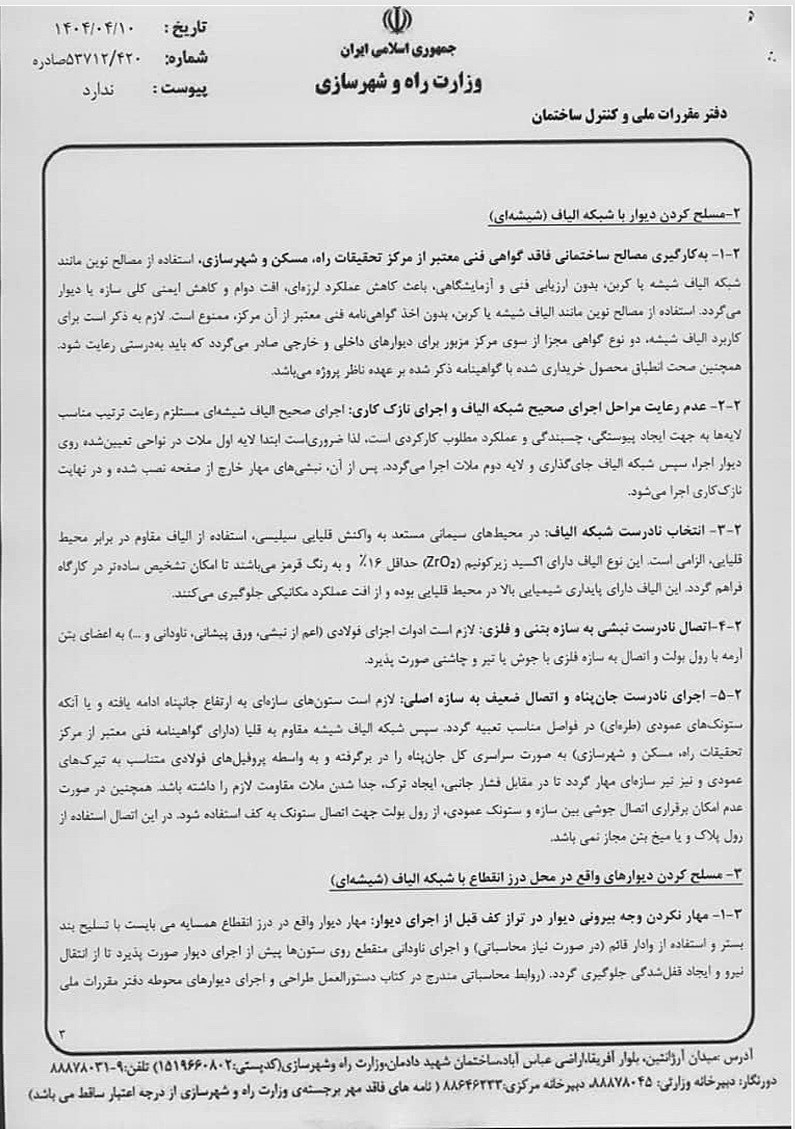 جمهوری اسلامی ایران
وزارت راه و شهرسازی
تاریخ : ۱۴۰۴/۰۴/۱۰
شماره: ۵۳۷۱۲/۴۲۰صادره
پیوست : ندارد
دفتر مقررات ملی و کنترل ساختمان
۲-مسلح کردن دیوار با شبکه الیاف (شیشه‌ای)
۲-۱- به‌کارگیری مصالح ساختمانی فاقد گواهی فنی معتبر از مرکز تحقیقات راه، مسکن و شهرسازی، استفاده از مصالح نوین مانند
شبکه الیاف شیشه یا کربن، بدون ارزیابی فنی و آزمایشگاهی، باعث کاهش عملکرد لرزه‌ای، افت دوام و کاهش ایمنی کلی سازه یا دیوار
می‌گردد. استفاده از مصالح نوین مانند الیاف شیشه یا کربن، بدون اخذ گواهی‌نامه فنی معتبر از آن مرکز، ممنوع است. لازم به ذکر است برای
کاربرد الیاف شیشه، دو نوع گواهی مجزا از سوی مرکز مزبور برای دیوارهای داخلی و خارجی صادر می‌گردد که باید به‌درستی رعایت شود.
همچنین صحت انطباق محصول خریداری شده با گواهینامه ذکر شده بر عهده ناظر پروژه می‌باشد.
۲-۲- عدم رعایت مراحل اجرای صحیح شبکه الیاف و اجرای نازک کاری: اجرای صحیح الیاف شیشه‌ای مستلزم رعایت ترتیب مناسب
لایه‌ها به جهت ایجاد پیوستگی، چسبندگی و عملکرد مطلوب کارکردی است، لذا ضروری‌است ابتدا لایه اول ملات در نواحی تعیین‌شده روی
دیوار اجرا، سپس شبکه الیاف جای‌گذاری و لایه دوم ملات اجرا می‌گردد. پس از آن، نبشی‌های مهار خارج از صفحه نصب شده و در نهایت
نازک‌کاری اجرا می‌شود.
۲-۳- انتخاب نادرست شبکه الیاف: در محیط‌های سیمانی مستعد به واکنش قلیایی سیلیسی، استفاده از الیاف مقاوم در برابر محیط
قلیایی، الزامی است. این نوع الیاف دارای اکسید زیرکونیم (ZrO₂) حداقل ۱۶٪ و به رنگ قرمز می‌باشند تا امکان تشخیص ساده‌تر در کارگاه
فراهم گردد. این الیاف دارای پایداری شیمیایی بالا در محیط قلیایی بوده و از افت عملکرد مکانیکی جلوگیری می‌کنند.
۲-۴-اتصال نادرست نبشی به سازه بتنی و فلزی: لازم است ادوات اجزای فولادی (اعم از نبشی، ورق پیشانی، ناودانی و ...) به اعضای بتن
آرمه با رول بولت و اتصال به سازه فلزی با جوش یا تیر و چاشنی صورت پذیرد.
۲-۵- اجرای نادرست جان‌پناه و اتصال ضعیف به سازه اصلی: لازم است ستون‌های سازه‌ای به ارتفاع جانپناه ادامه یافته و یا آنکه
ستونک‌های عمودی (طره‌ای) در فواصل مناسب تعبیه گردد. سپس شبکه الیاف شیشه مقاوم به قلیا (دارای گواهینامه فنی معتبر از مرکز
تحقیقات راه، مسکن و شهرسازی) به صورت سراسری کل جان‌پناه را در برگرفته و به واسطه پروفیل‌های فولادی متناسب به تیرک‌های
عمودی و نیز تیر سازه‌ای مهار گردد تا در مقابل فشار جانبی، ایجاد ترک، جدا شدن ملات مقاومت لازم را داشته باشد. همچنین در صورت
عدم امکان برقراری اتصال جوشی بین سازه و ستونک عمودی، از رول بولت جهت اتصال ستونک به کف استفاده شود. در این اتصال استفاده از
رول پلاک و یا میخ بتن مجاز نمی باشد.
۳- مسلح کردن دیوارهای واقع در محل درز انقطاع با شبکه الیاف (شیشه‌ای)
۳-۱- مهار نکردن وجه بیرونی دیوار در تراز کف قبل از اجرای دیوار: مهار دیوار واقع در درز انقطاع همسایه می بایست با تسلیح بند
بستر و استفاده از وادار قائم (در صورت نیاز محاسباتی) و اجرای ناودانی منقطع روی ستون‌ها پیش از اجرای دیوار صورت پذیرد تا از انتقال
نیرو و ایجاد قفل‌شدگی جلوگیری گردد. (روابط محاسباتی مندرج در کتاب دستورالعمل طراحی و اجرای دیوارهای محوطه دفتر مقررات ملی
۳
آدرس :میدان آرژانتین، بلوار آفریقا،اراضی عباس آباد،ساختمان شهید دادمان،وزارت راه وشهرسازی(کدپستی:۱۵۱۹۶۶۰۸۰۲) تلفن:۹-۸۸۸۷۸۰۳۱
دورنگار: دبیرخانه وزارتی: ۸۸۸۷۸۰۴۵، دبیرخانه مرکزی:۸۸۶۴۶۲۳۳ ( نامه های فاقد مهر برجسته‌ی وزارت راه و شهرسازی از درجه اعتبار ساقط می باشد)